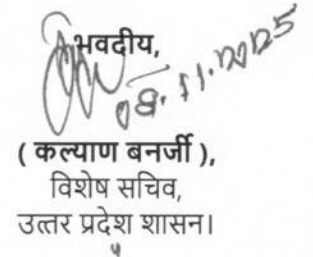 भवदीय,
08.11.2025
( कल्याण बनर्जी ),
विशेष सचिव,
उत्तर प्रदेश शासन।